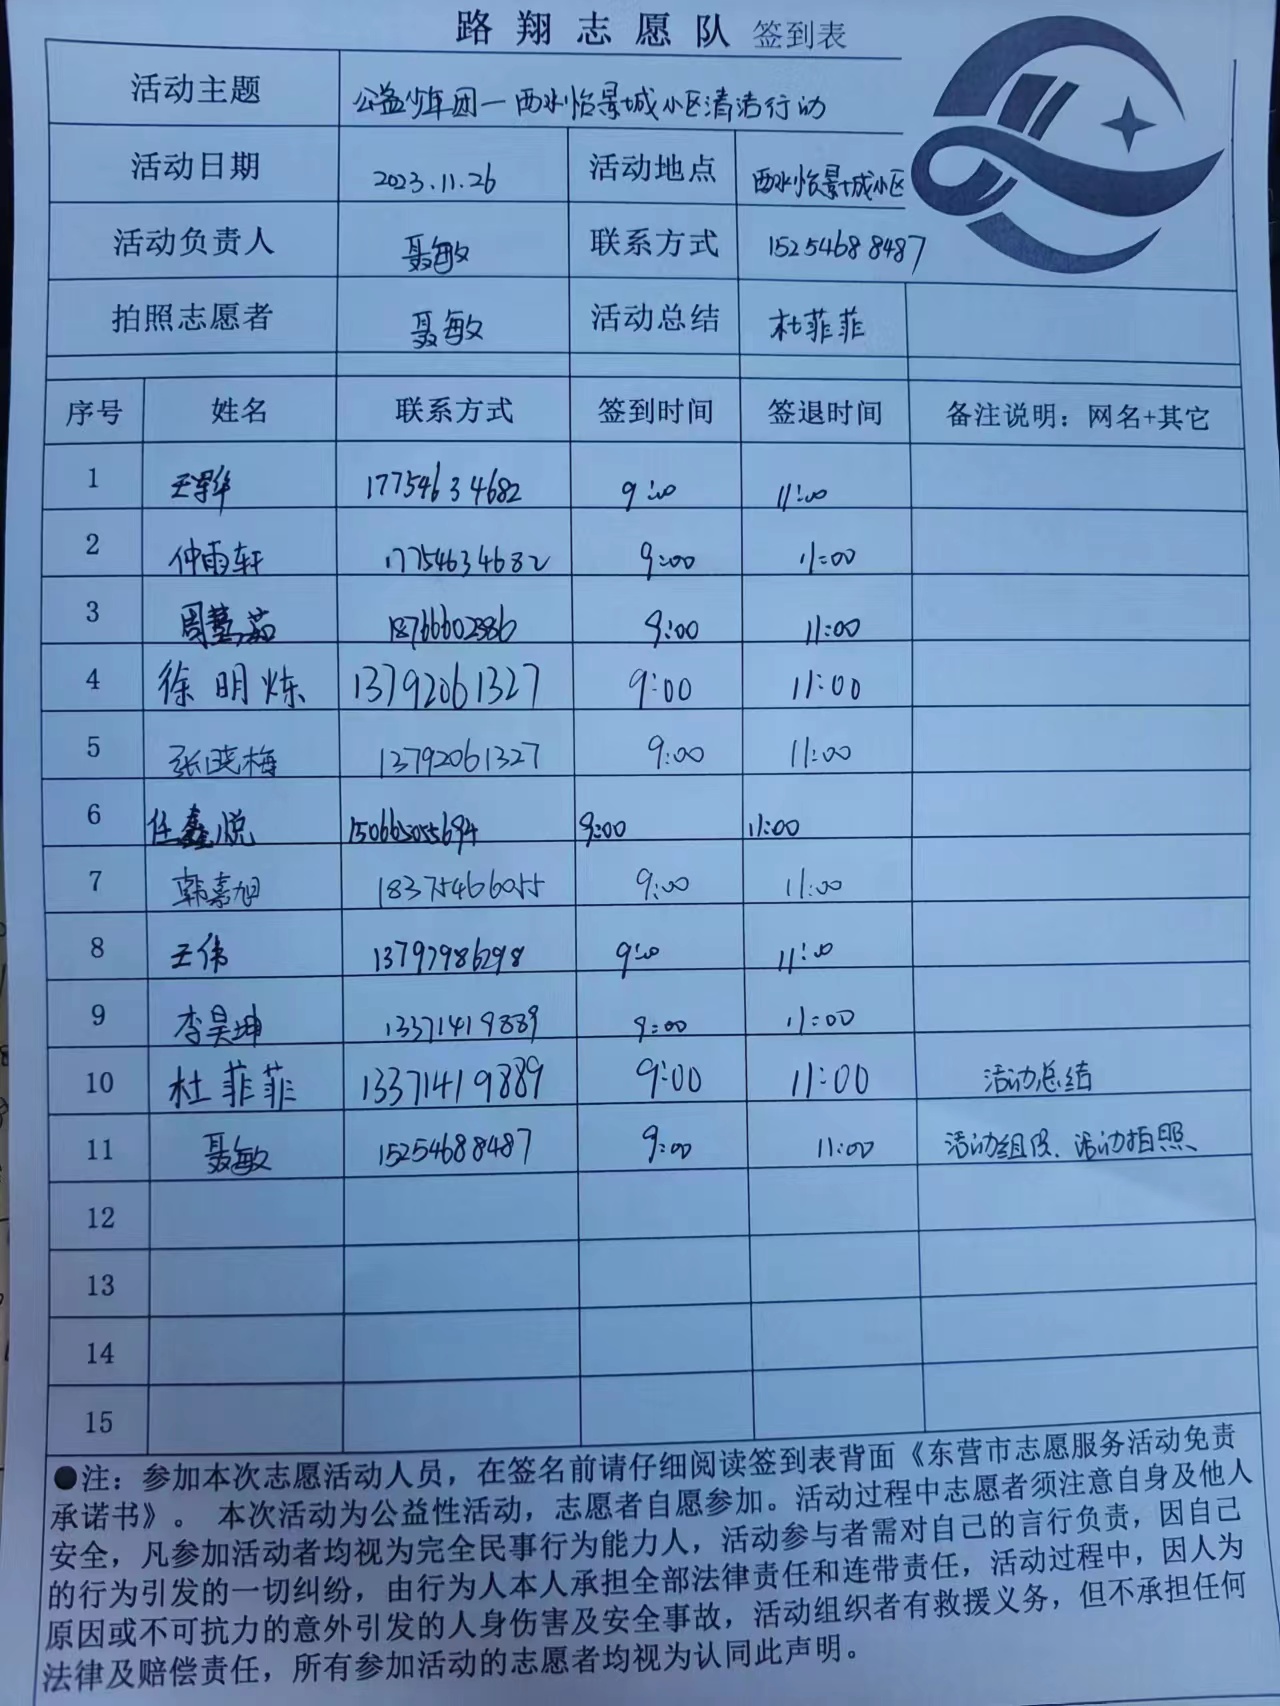 路翔志愿队 签到表
活动主题 公益少年团一西水怡景城小区清洁行动
活动日期 2023.11.26 活动地点 西水怡景城小区
活动负责人 聂敏 联系方式 15254688487
拍照志愿者 聂敏 活动总结 杜菲菲
序号 姓名 联系方式 签到时间 签退时间 备注说明：网名+其它
1 17754634682 9:00 11:00
2 仲雨轩 17754634682 9:00 11:00
3 周慧茹 18766602886 9:00 11:00
4 徐明炼 13792061327 9:00 11:00
5 张晓梅 13792061327 9:00 11:00
6 任鑫悦 150663055694 9:00 11:00
7 韩嘉旭 18375466055 9:00 11:00
8 王伟 13797986298 9:00 11:00
9 李昊坤 13371419889 9:00 11:00
10 杜菲菲 13371419889 9:00 11:00 活动总结
11 聂敏 15254688487 9:00 11:00 活动组织、活动拍照
12
13
14
15
●注：参加本次志愿活动人员，在签名前请仔细阅读签到表背面《东营市志愿服务活动免责
承诺书》。 本次活动为公益性活动，志愿者自愿参加。活动过程中志愿者须注意自身及他人
安全，凡参加活动者均视为完全民事行为能力人，活动参与者需对自己的言行负责，因自己
的行为引发的一切纠纷，由行为人本人承担全部法律责任和连带责任，活动过程中，因人为
原因或不可抗力的意外引发的人身伤害及安全事故，活动组织者有救援义务，但不承担任何
法律及赔偿责任，所有参加活动的志愿者均视为认同此声明。